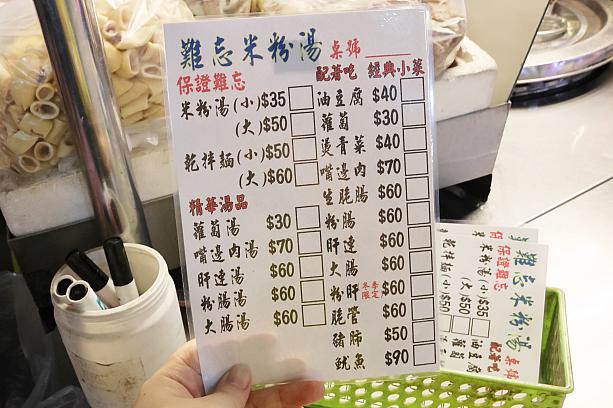 難忘米粉湯 桌號
保證難忘
米粉湯(小)$35
(大)$50
乾拌麵(小)$50
(大)$60
精華湯品
蘿蔔湯 $30
嘴邊肉湯 $70
肝連湯 $60
粉腸湯 $60
大腸湯 $60
配著吃 經典小菜
油豆腐 $40
蘿蔔 $30
燙青菜 $40
嘴邊肉 $70
生腸 $60
粉腸 $60
肝連 $60
大腸 $60
粉肝 冬季限定 $60
脆管 $60
豬肺 $50
魷魚 $90
難忘米粉湯 桌號
保證難忘
米粉湯(小)$35
(大)$50
乾拌麵(小)$50
配著吃
油豆腐
蘿蔔